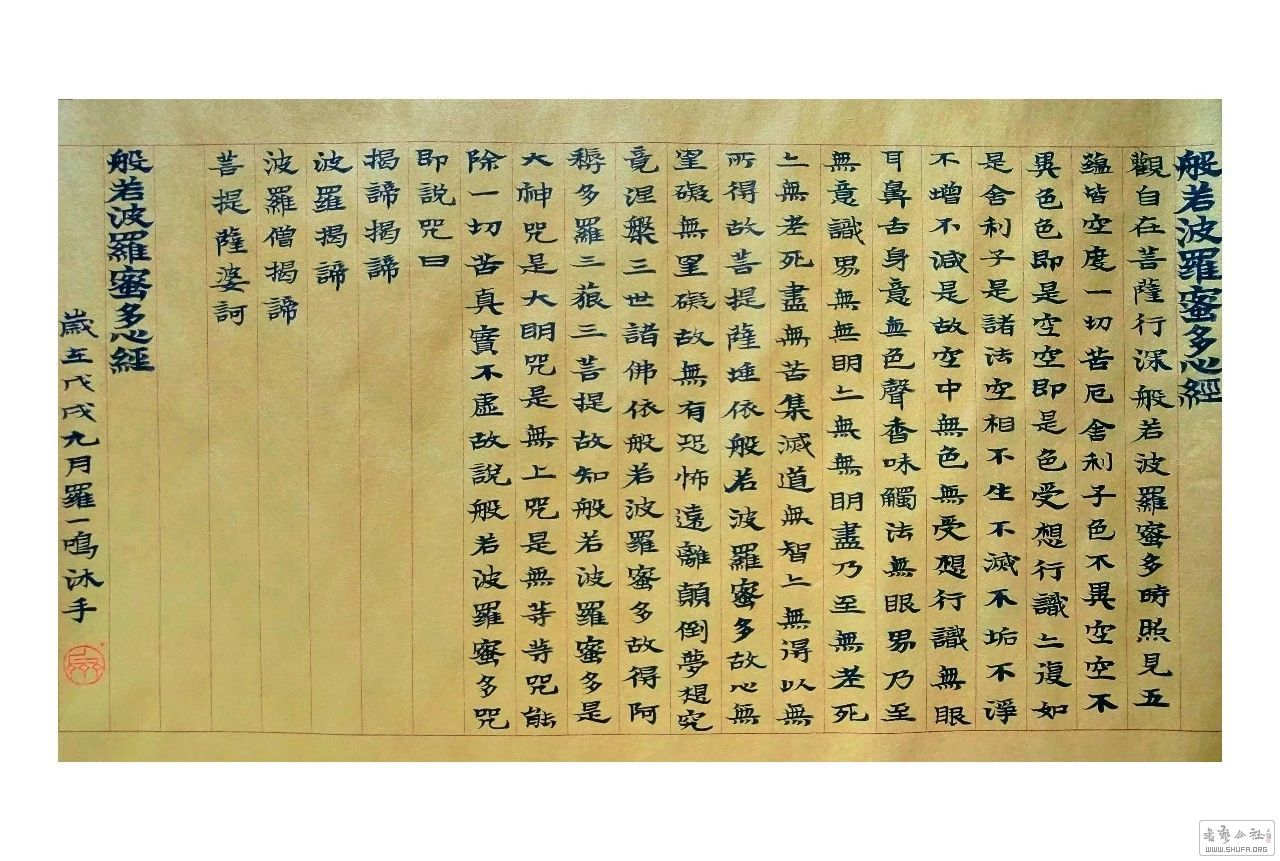 般若波羅蜜多心經
觀自在菩薩行深般若波羅蜜多時照見五
蘊皆空度一切苦厄舍利子色不異空空不
異色色即是空空即是色受想行識亦復如
是舍利子是諸法空相不生不滅不垢不淨
不增不減是故空中無色無受想行識無眼
耳鼻舌身意無色聲香味觸法無眼界乃至
無意識界無無明亦無無明盡乃至無老死
亦無老死盡無苦集滅道無智亦無得以無
所得故菩提薩埵依般若波羅蜜多故心無
罣礙無罣礙故無有恐怖遠離顛倒夢想究
竟涅槃三世諸佛依般若波羅蜜多故得阿
耨多羅三藐三菩提故知般若波羅蜜多是
大神咒是大明咒是無上咒是無等等咒能
除一切苦真實不虛故說般若波羅蜜多咒
即說咒曰
揭諦揭諦
波羅揭諦
波羅僧揭諦
菩提薩婆訶
般若波羅蜜多心經
歲在戊戌九月羅一鳴沐手
書藝公社
WWW.SHUFA.ORG